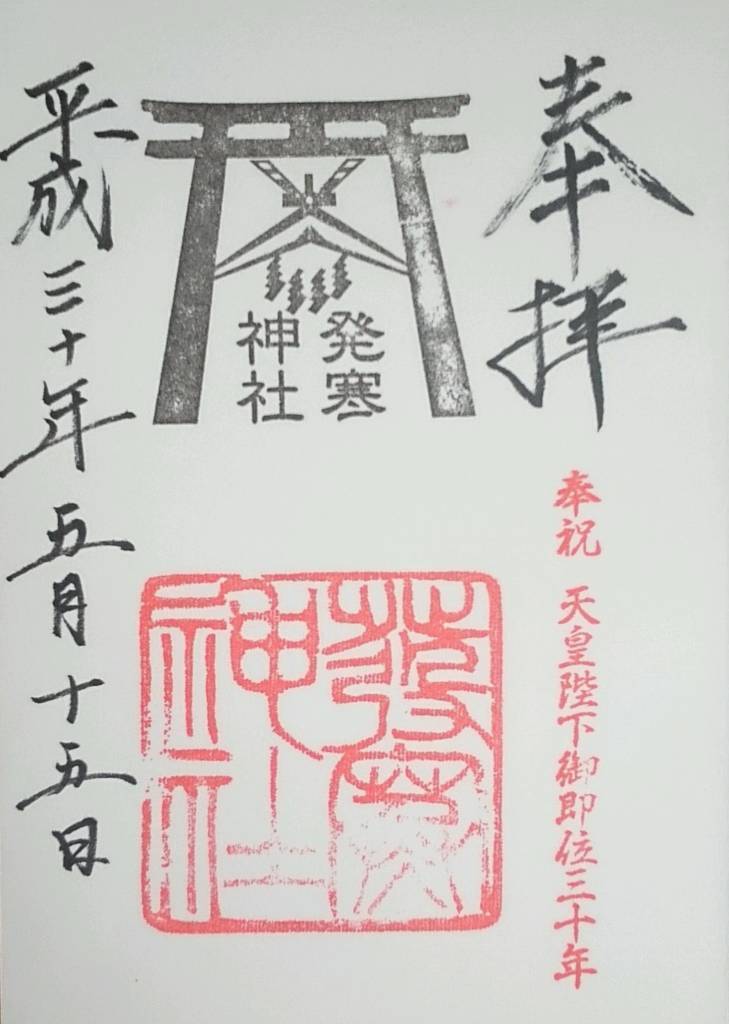 奉拝
奉祝 天皇陛下御即位三十年
発寒
神社
發寒
神社
平成三十年五月十五日